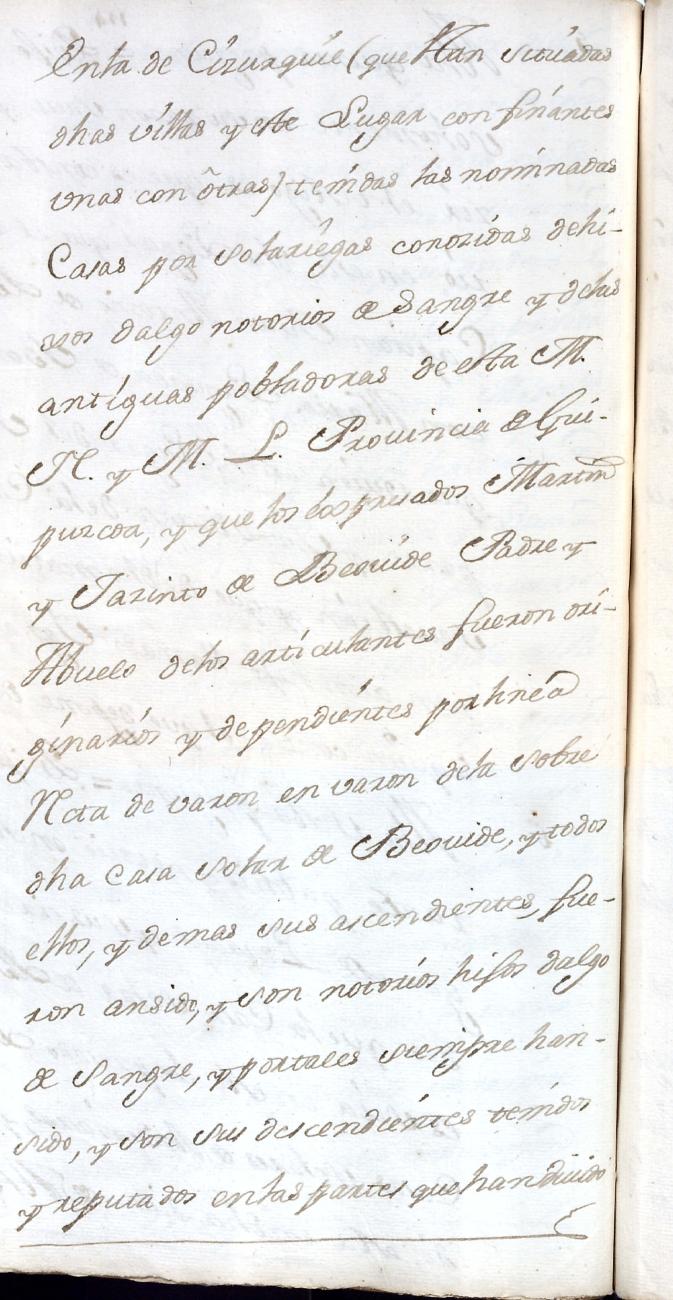 Enla de Cizurquíl (que Han sítúadas
dhas víllas y este Lugar confínantes
unas con otras) tenídas las nomínadas
Casas por solariégas conozídas dehí-
xos dalgo notorios de Sangre y delas
antíguas pobladoras de esta M.
N. y M. L. Provincia de Guí-
puzcoa, y que los expresados Martín
y Jazinto de Beouíde Padre y
Abuelo delos artículantes fueron orí-
gínaríos y dependiéntes por línéa
Recta de varon en varon dela sobre
dha Casa solar de Beouide, y todos
ellos, y demas sus ascendientes, fue-
ron ansido, y son notoríos hijos dalgo
de Sangre, y portales siempre han-
sido, y son sus descendiéntes tenídos
y reputados enlas partes que han vívido